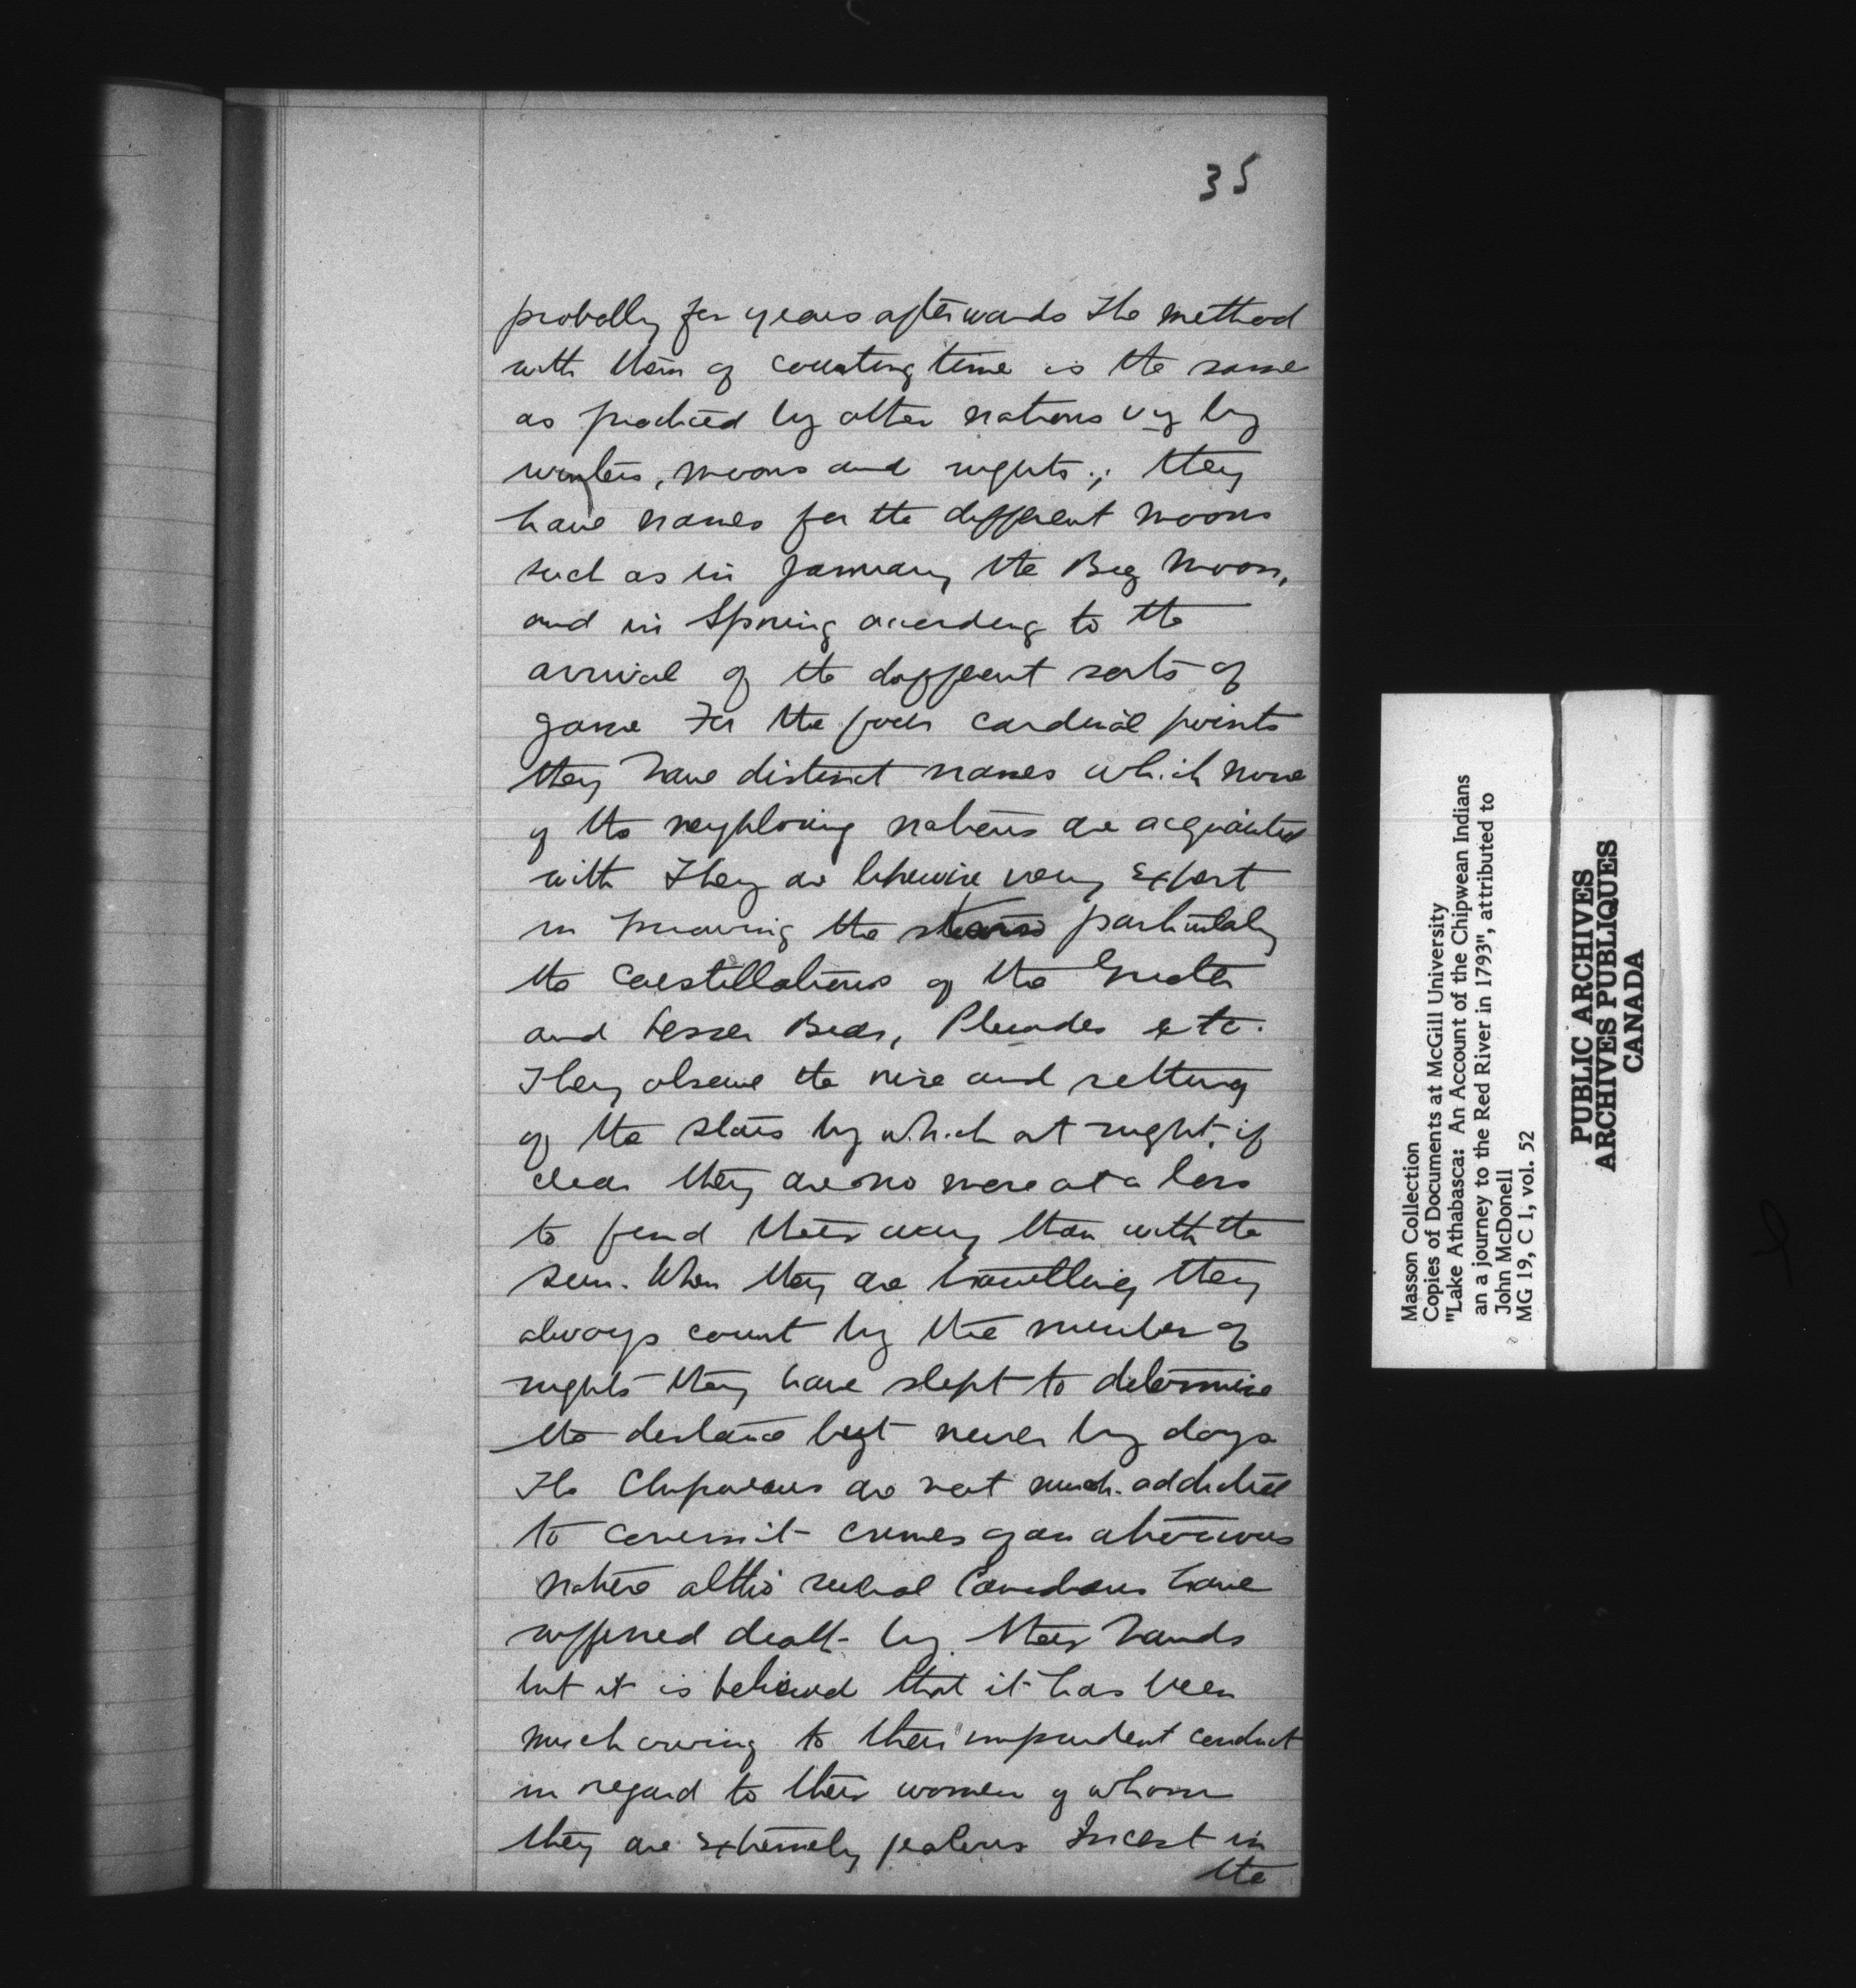 35
probably for years afterwards The method
with them of counting time is the same
as practiced by other nations viz by
winters, moons and nights.; they
have names for the different moons
such as in January the Big Moon,
and in Spring according to the
arrival of the different sorts of
game For the four cardinal points
they have distinct names which none
of the neighboring nations are acquainted
with They are likewise very expert
in knowing the stars particularly
the constillations of the Greater
and Lesser Bear, Pleiades etc.
They observe the rise and setting
of the stars by which at night, if
clear they are no more at a loss
to find their way than with the
sun. When they are travelling they
always count by the number of
nights they have slept to determine
the distance but never by days
The Chipweans are not much addicted
to commit crimes of an atrocious
nature altho' several Canadians have
suffered death by their hands
but it is believed that it has been
much owing to their imprudent conduct
in regard to their women of whom
they are extremely jealous Incest in
the
Masson Collection
Copies of Documents at McGill University
"Lake Athabasca: An Account of the Chipwean Indians
an a journey to the Red River in 1793", attributed to
John McDonell
MG 19, C 1, vol. 52
PUBLIC ARCHIVES
ARCHIVES PUBLIQUES
CANADA